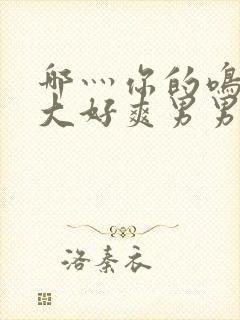 哪灬你的鳴
大好爽男男
洛秦衣